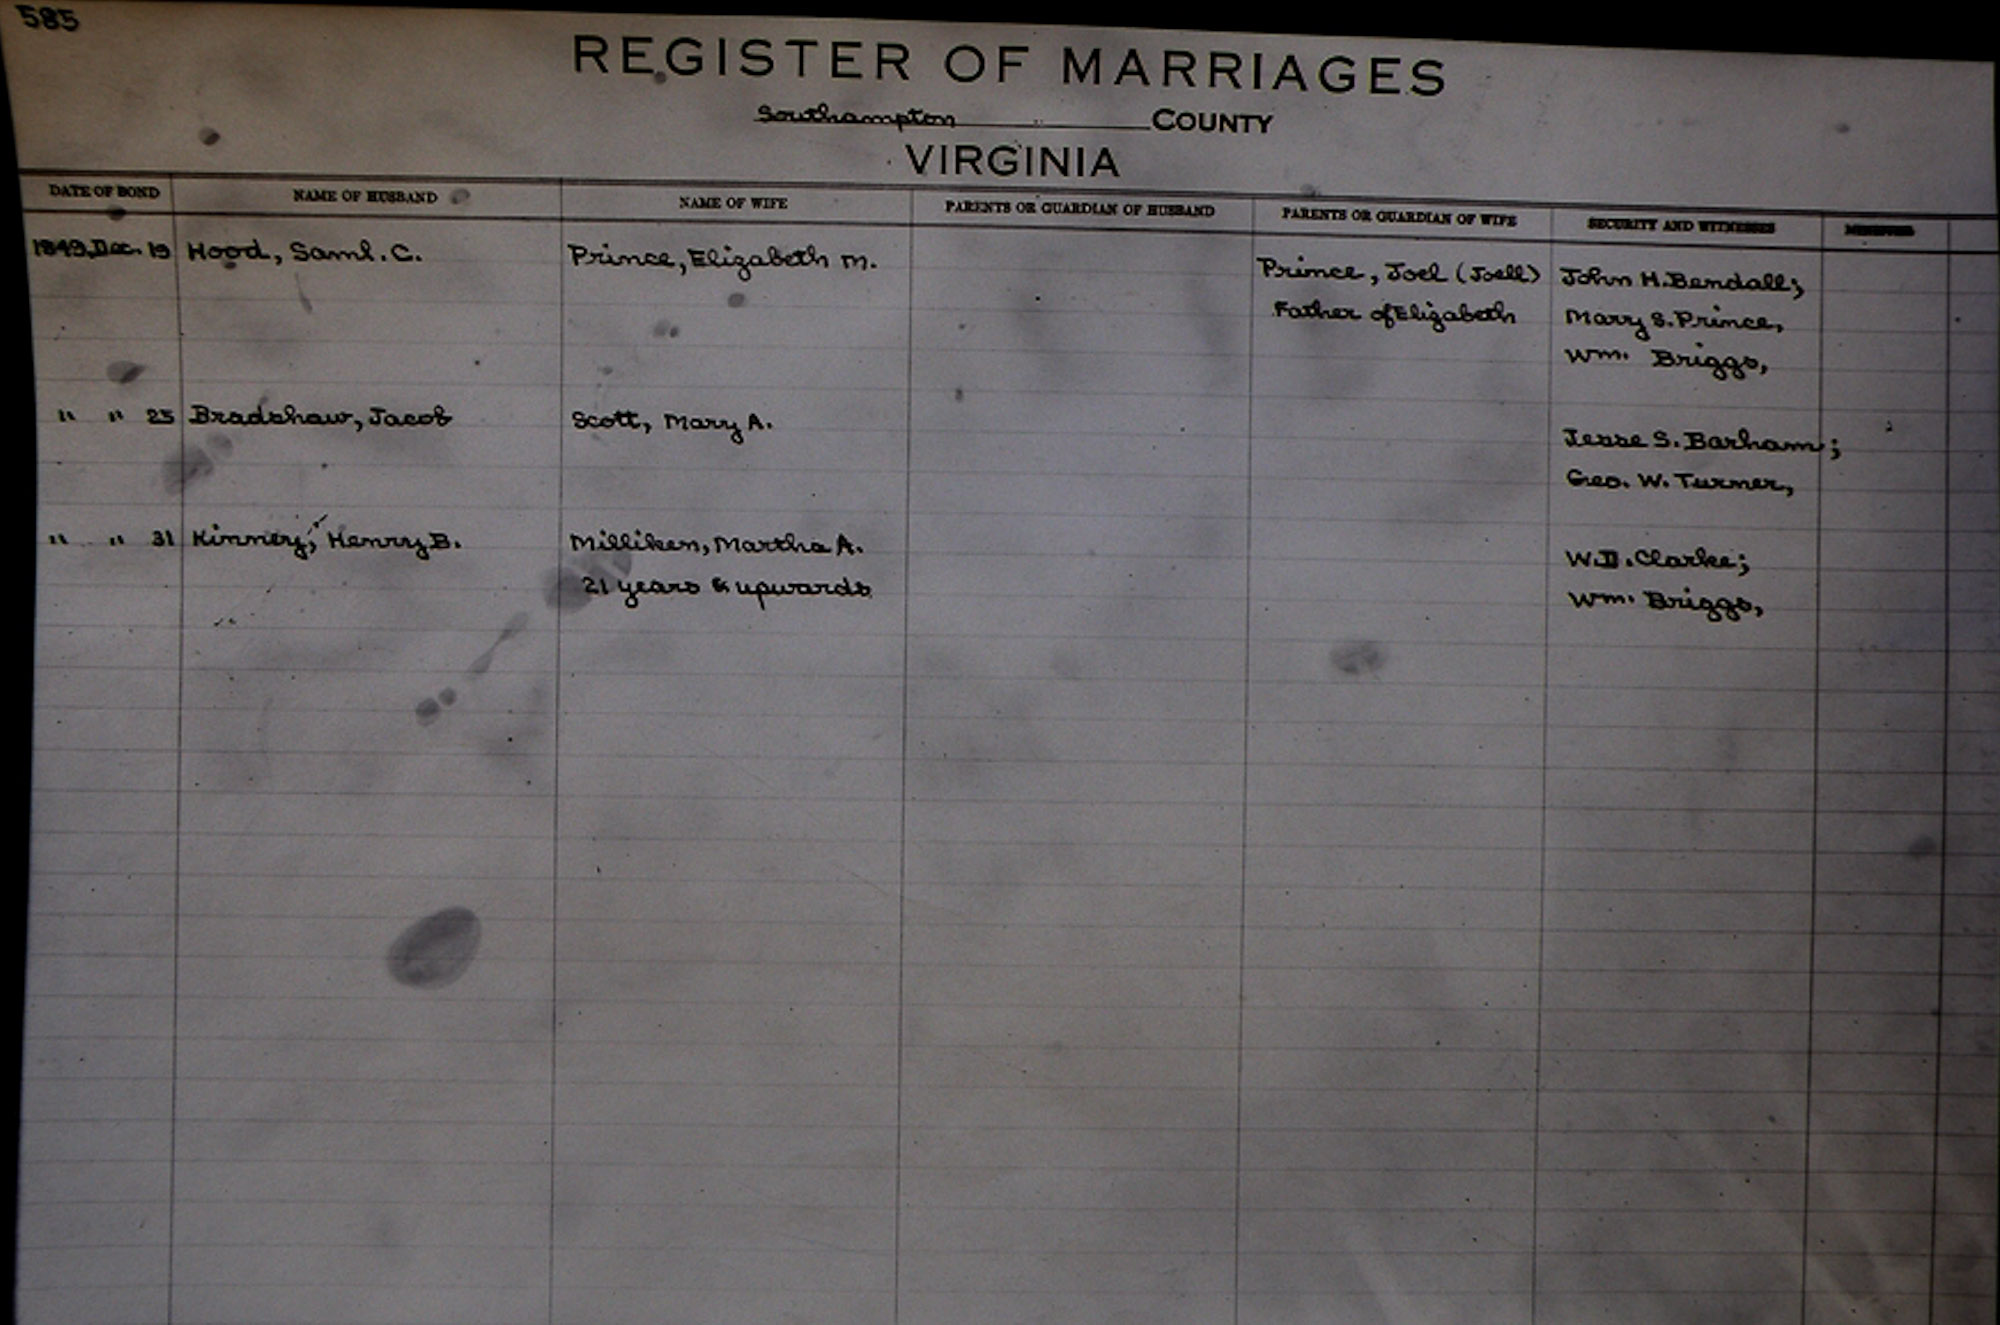 585
REGISTER OF MARRIAGES
Southampton COUNTY
VIRGINIA
DATE OF BOND NAME OF HUSBAND NAME OF WIFE PARENTS OR GUARDIAN OF HUSBAND PARENTS OR GUARDIAN OF WIFE SECURITY AND WITNESSES MINISTER
1849, Dec. 19 Hood, Saml. C. Prince, Elizabeth M. Prince, Joel (Joell) John H. Bendall;
Father of Elizabeth Mary S. Prince,
Wm. Briggs,
" " 25 Bradshaw, Jacob Scott, Mary A. Jesse S. Barham;
Geo. W. Turner,
" " 31 Kinney, Henry B. Milliken, Martha A. W.D. Clarke;
21 years & upwards Wm. Briggs,